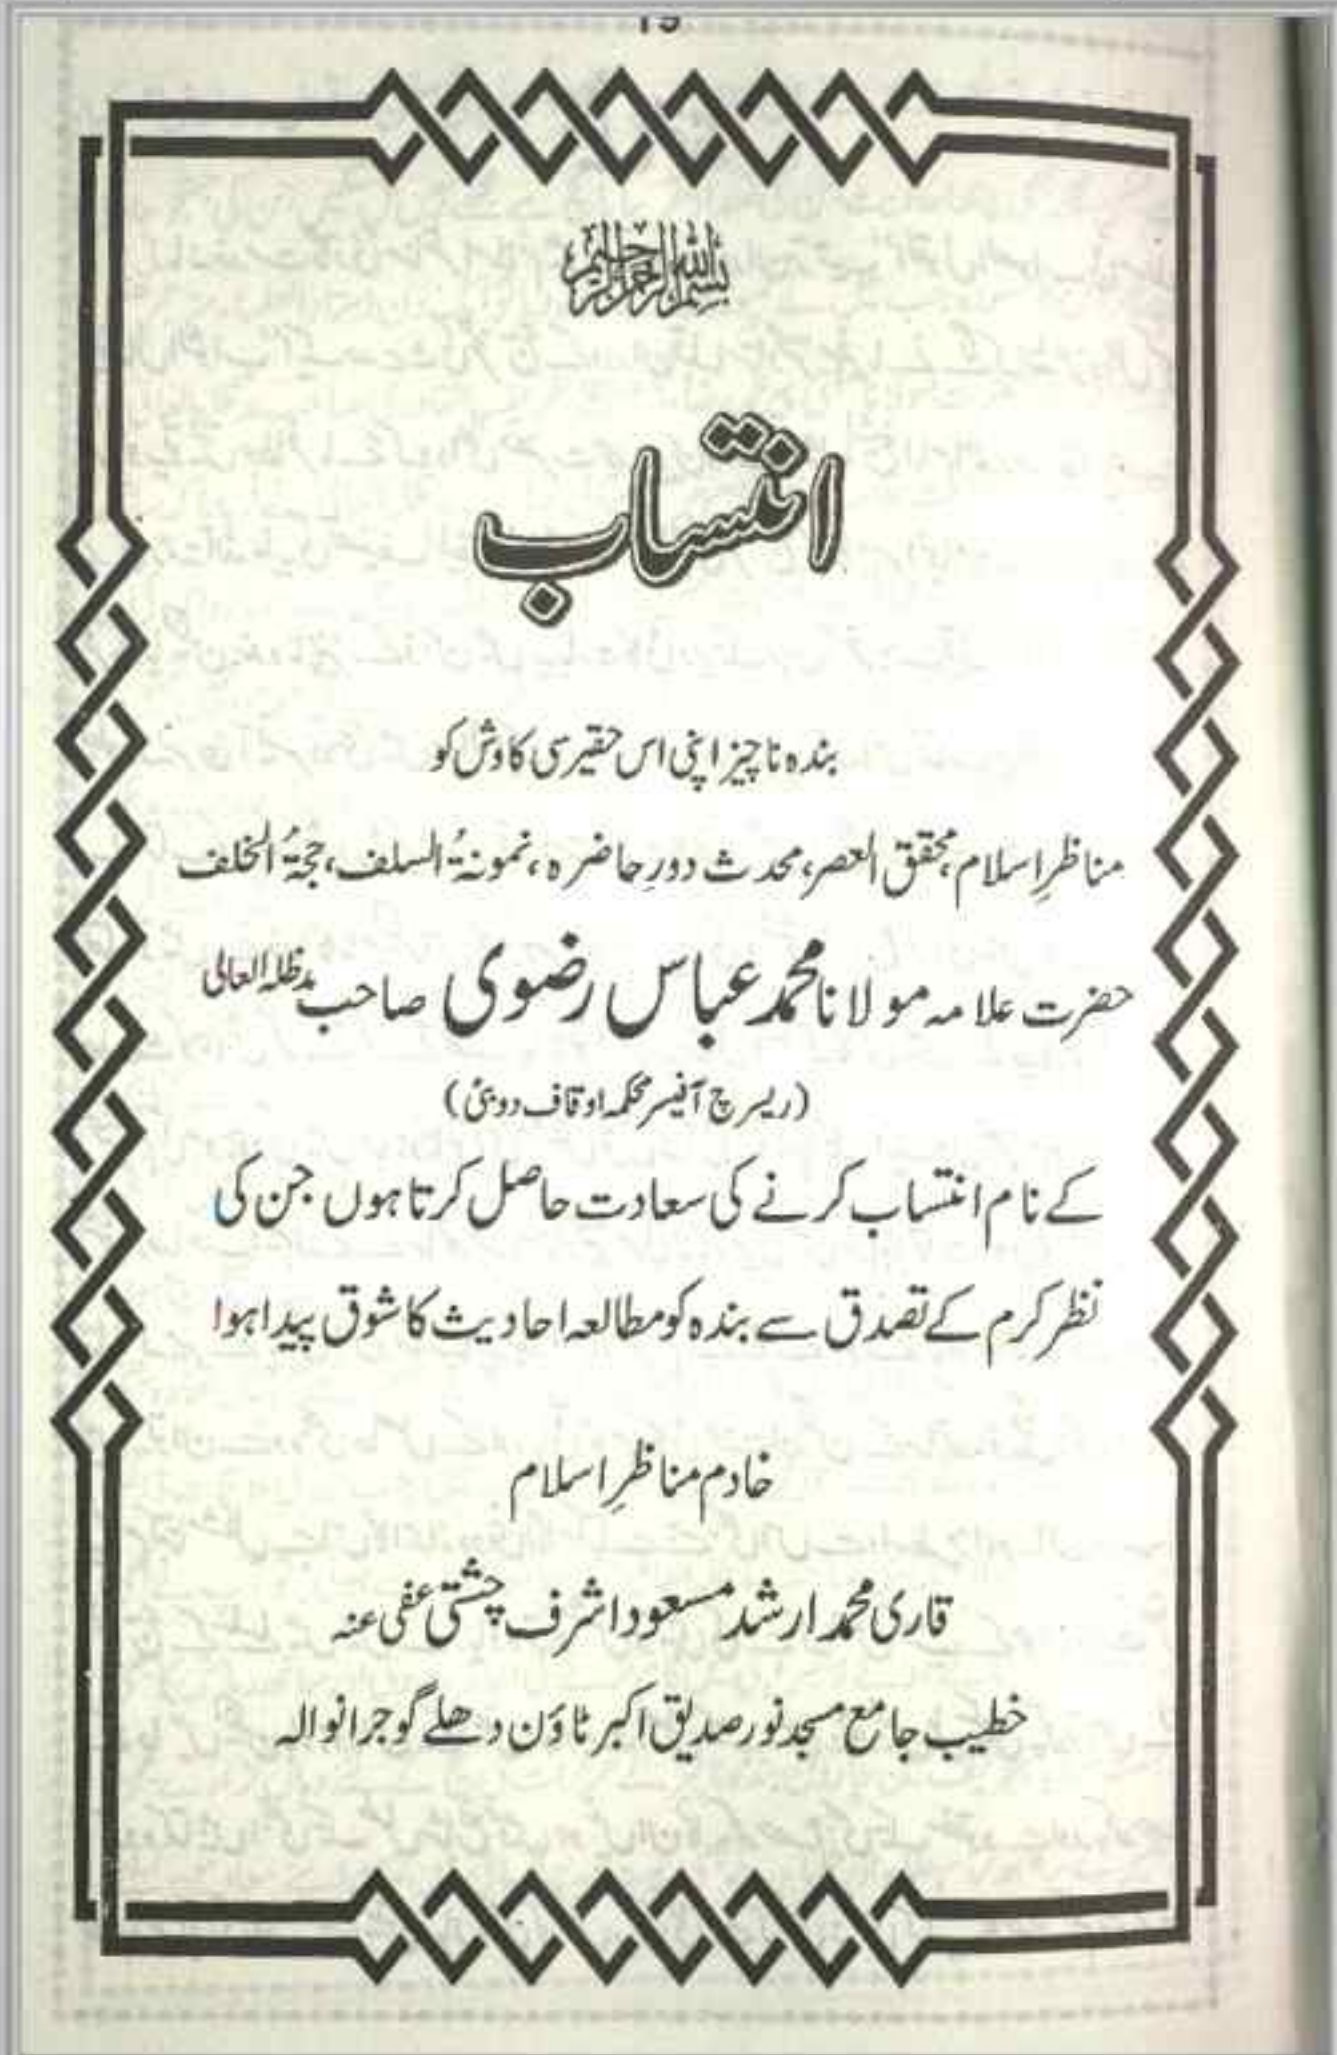 بسم الله الرحمن الرحيم
انتساب
بندہ ناچیز اپنی اس حقیر سی کاوش کو
مناظرِ اسلام، محقق العصر، محدث دورِ حاضرہ، نمونۃُ السلف، حجۃُ الخلف
حضرت علامہ مولانا محمد عباس رضوی صاحب مدظلہ العالی
(ریسرچ آفیسر محکمہ اوقاف دوبئ)
کے نام انتساب کرنے کی سعادت حاصل کرتا ہوں جن کی
نظر کرم کے تصدق سے بندہ کو مطالعہ احادیث کا شوق پیدا ہوا
خادم مناظرِ اسلام
قاری محمد ارشد مسعود اشرف چشتی عفی عنہ
خطیب جامع مسجد نور صدیق اکبر ٹاؤن دھلے گوجرانوالہ